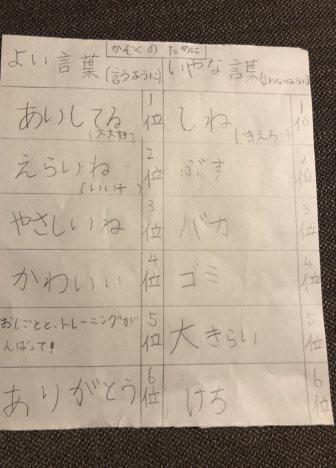 かぞくの ために
よい言葉(言うように)
いやな言葉(言わないように)
あいしてる
(大大すき)
1位
しね
(きえろ)
1位
えらいね
(いい子)
2位
ぶす
2位
やさしいね
3位
バカ
3位
かわいい
4位
ゴミ
4位
おしごとと、トレーニングが
んばって!
5位
大きらい
5位
ありがとう
6位
けち
6位